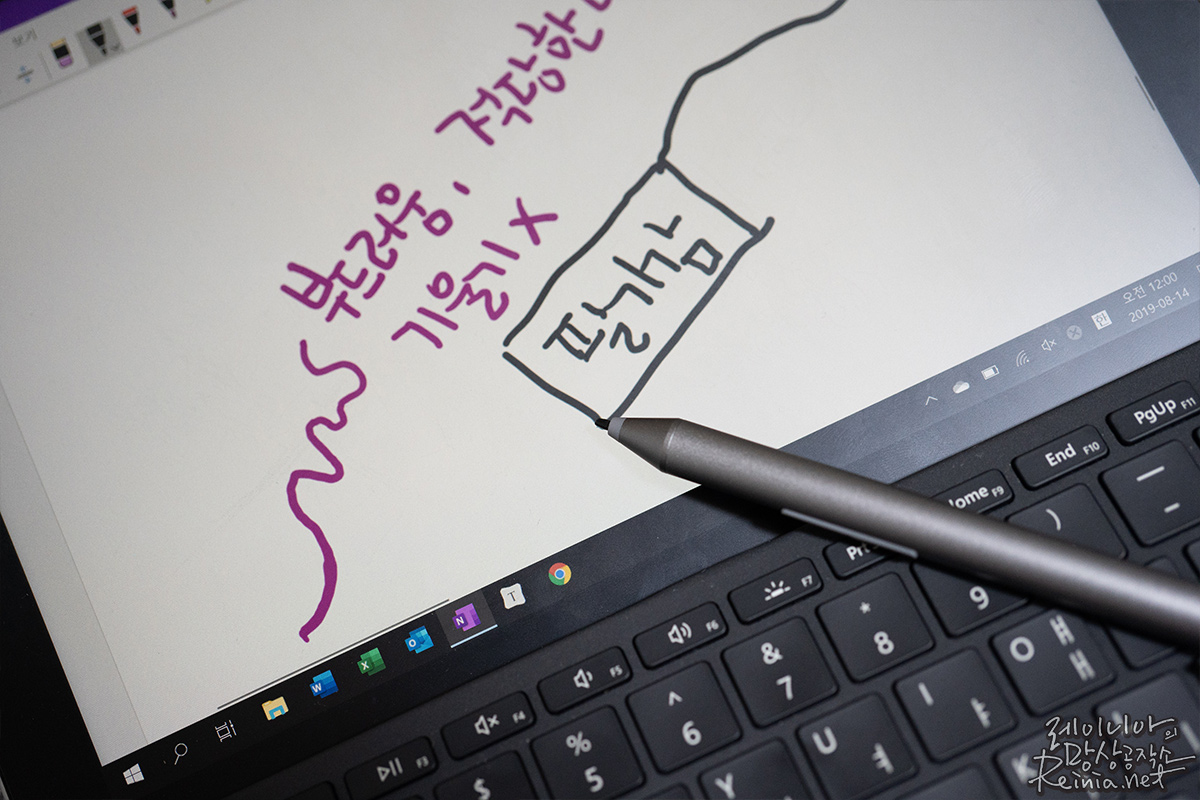 보기
적당한
부드러움,
기울기 X
필기감
오전 12:00
2019-08-14
한
PgUp F11
End F10
Home F9
)
9
F7
*
8
F6
&
7
F5
^
6
F4
%
5
F3
$
O ㅐ ㅒ
I ㅑ
U ㅕ
Y
레이니아의
망상공작소
Reinia.net